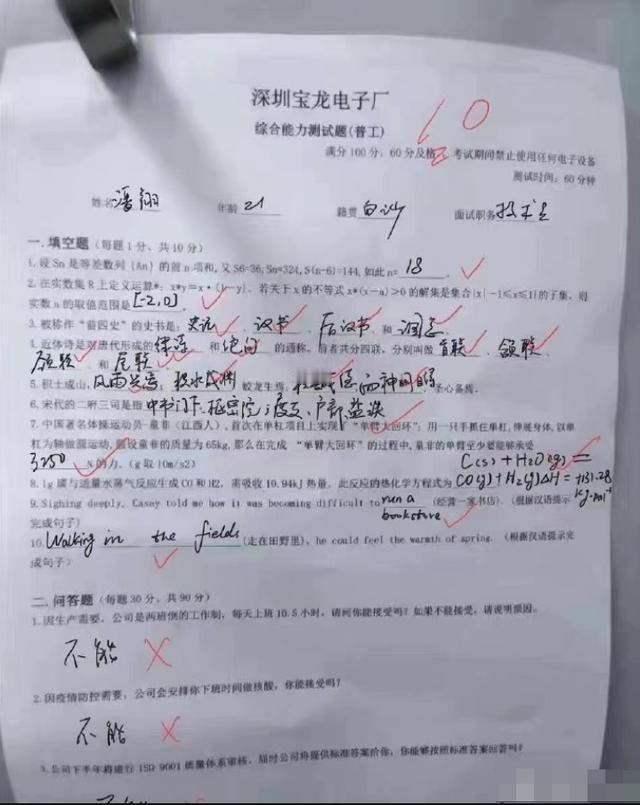 深圳宝龙电子厂
综合能力测试题(普工)
10
满分100分，60分及格，考试期间禁止使用任何电子设备
测试时间：60分钟
姓名 潘翔 年龄 21 籍贯 白沙 面试职务 技术员
一.填空题（每题1分、共10分）
1.设Sn是等差数列{An}的前n项和,又S6=36,Sn=324,S(n-6)=144,如此n= 18
2.在实数集R上定义运算*：x*y=x·(1-y)。若关于x的不等式x*(x-a)>0的解集是集合{x|-1≤x≤1}的子集，则
实数a的取值范围是[-2,0]
3.被称作"前四史"的史书是：史记、汉书、后汉书和三国志
4.近体诗是对唐代形成的律诗和绝句的通称，前者共分四联，分别叫做首联、颔联、
颈联、和尾联
5.积土成山，风雨兴焉；积水成渊，蛟龙生焉；神明自得，圣心备焉。
6.宋代的二府三司是指中书门下、枢密院；度支、户部、盐铁
7.中国著名体操运动员-童非（江西人），首次在单杠项目上实现了"单臂大回环"：用一只手抓住单杠，伸展身体,以单
杠为轴做圆运动,假设童非的质量为65kg,那么在完成"单臂大回环"的过程中,童非的单臂至少要能够承受
3250 N的力。(g取10m/s2)
8.1g碳与适量水蒸气反应生成CO和H2，需吸收10.94kJ热量。此反应的热化学方程式为 C(s)+H2O(g)=
CO(g)+H2(g) ΔH=+131.28
kJ·mol⁻¹
9.Sighing deeply, Casey told me how it was becoming difficult to run a (经营一家书店).（根据汉语提示
bookstore
完成句子）
10.Walking in the fields(走在田野里), he could feel the warmth of spring.（根据汉语提示完
成句子）
二.问答题（每题30分、共90分）
1.因生产需要，公司是两班倒的工作制，每天上班10.5小时，请问你能接受吗？如果不能接受，请说明原因。
不能
2.因疫情防控需要，公司会安排你下班时间做核酸，你能接受吗？
不能
3.公司下半年将进行ISO 9001质量体系审核，届时公司将提供标准答案给你，你能够按照标准答案回答吗？